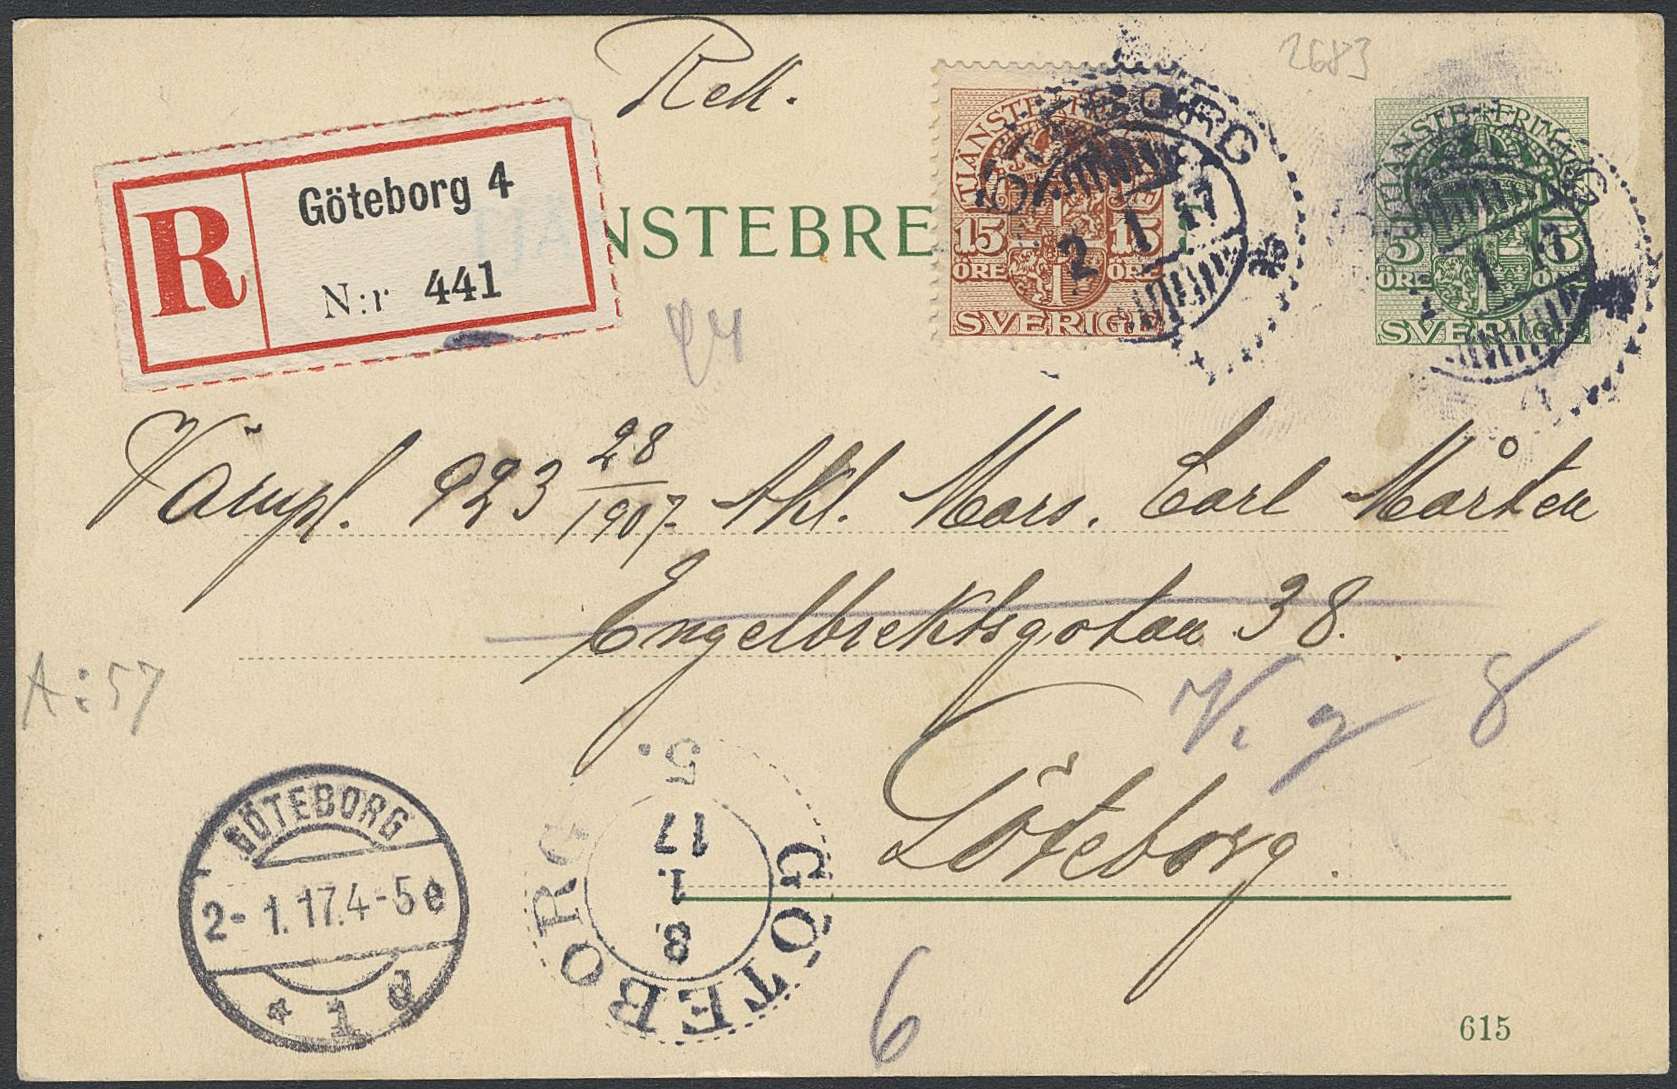 Rek.
2683
Göteborg 4
R
N:r 441
TJÄNSTEBRE
TJÄNSTEFRIMÄRKE
15 15
ÖRE ÖRE
SVERIGE
GÖTEBORG
2 1 17
TJÄNSTEFRIMÄRKE
5 5
ÖRE ÖRE
SVERIGE
Värnpl. 923 28/1907. Akl. Mars. Carl Mårten
Engelbrektsgatan 38.
A:57
V. g 8
Göteborg.
GÖTEBORG
2-1.17.4-5e
* 1 d
GÖTEBORG
8. 1. 17
5.
6
615